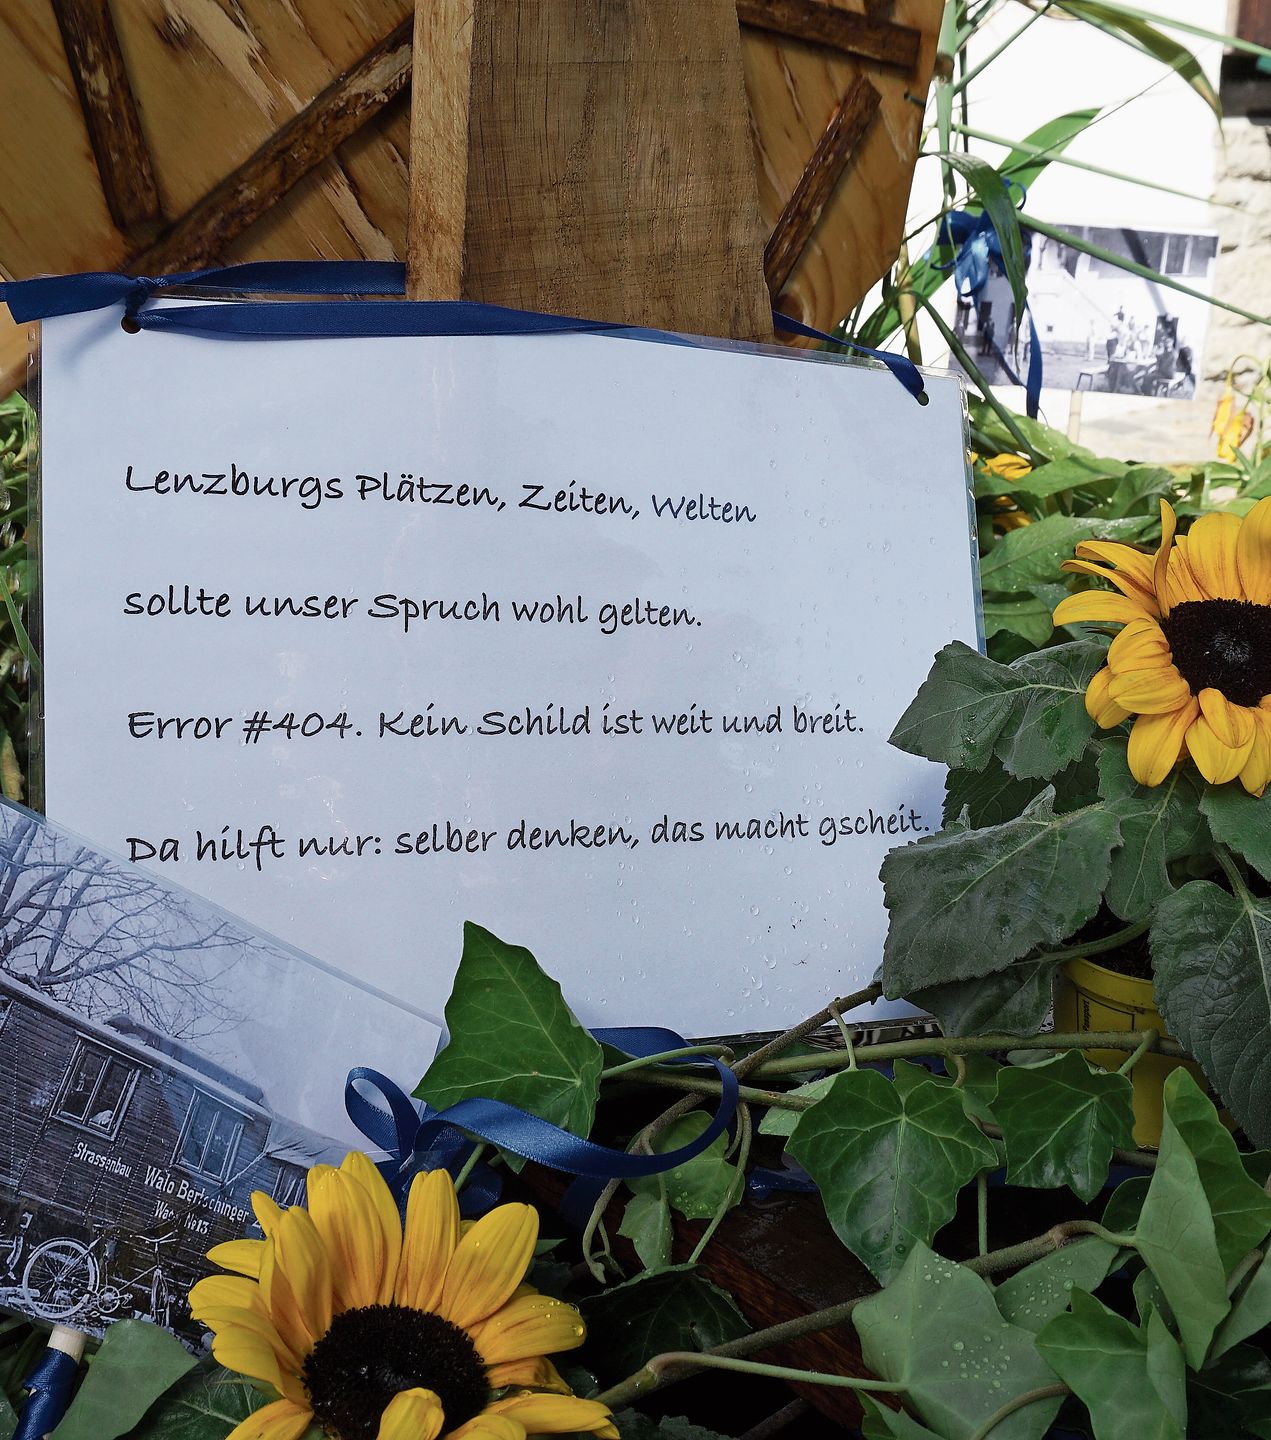 Lenzburgs Plätzen, Zeiten, Welten
sollte unser Spruch wohl gelten.
Error #404. Kein Schild ist weit und breit.
Da hilft nur: selber denken, das macht gscheit.
Strassenbau Walo Bertschinger